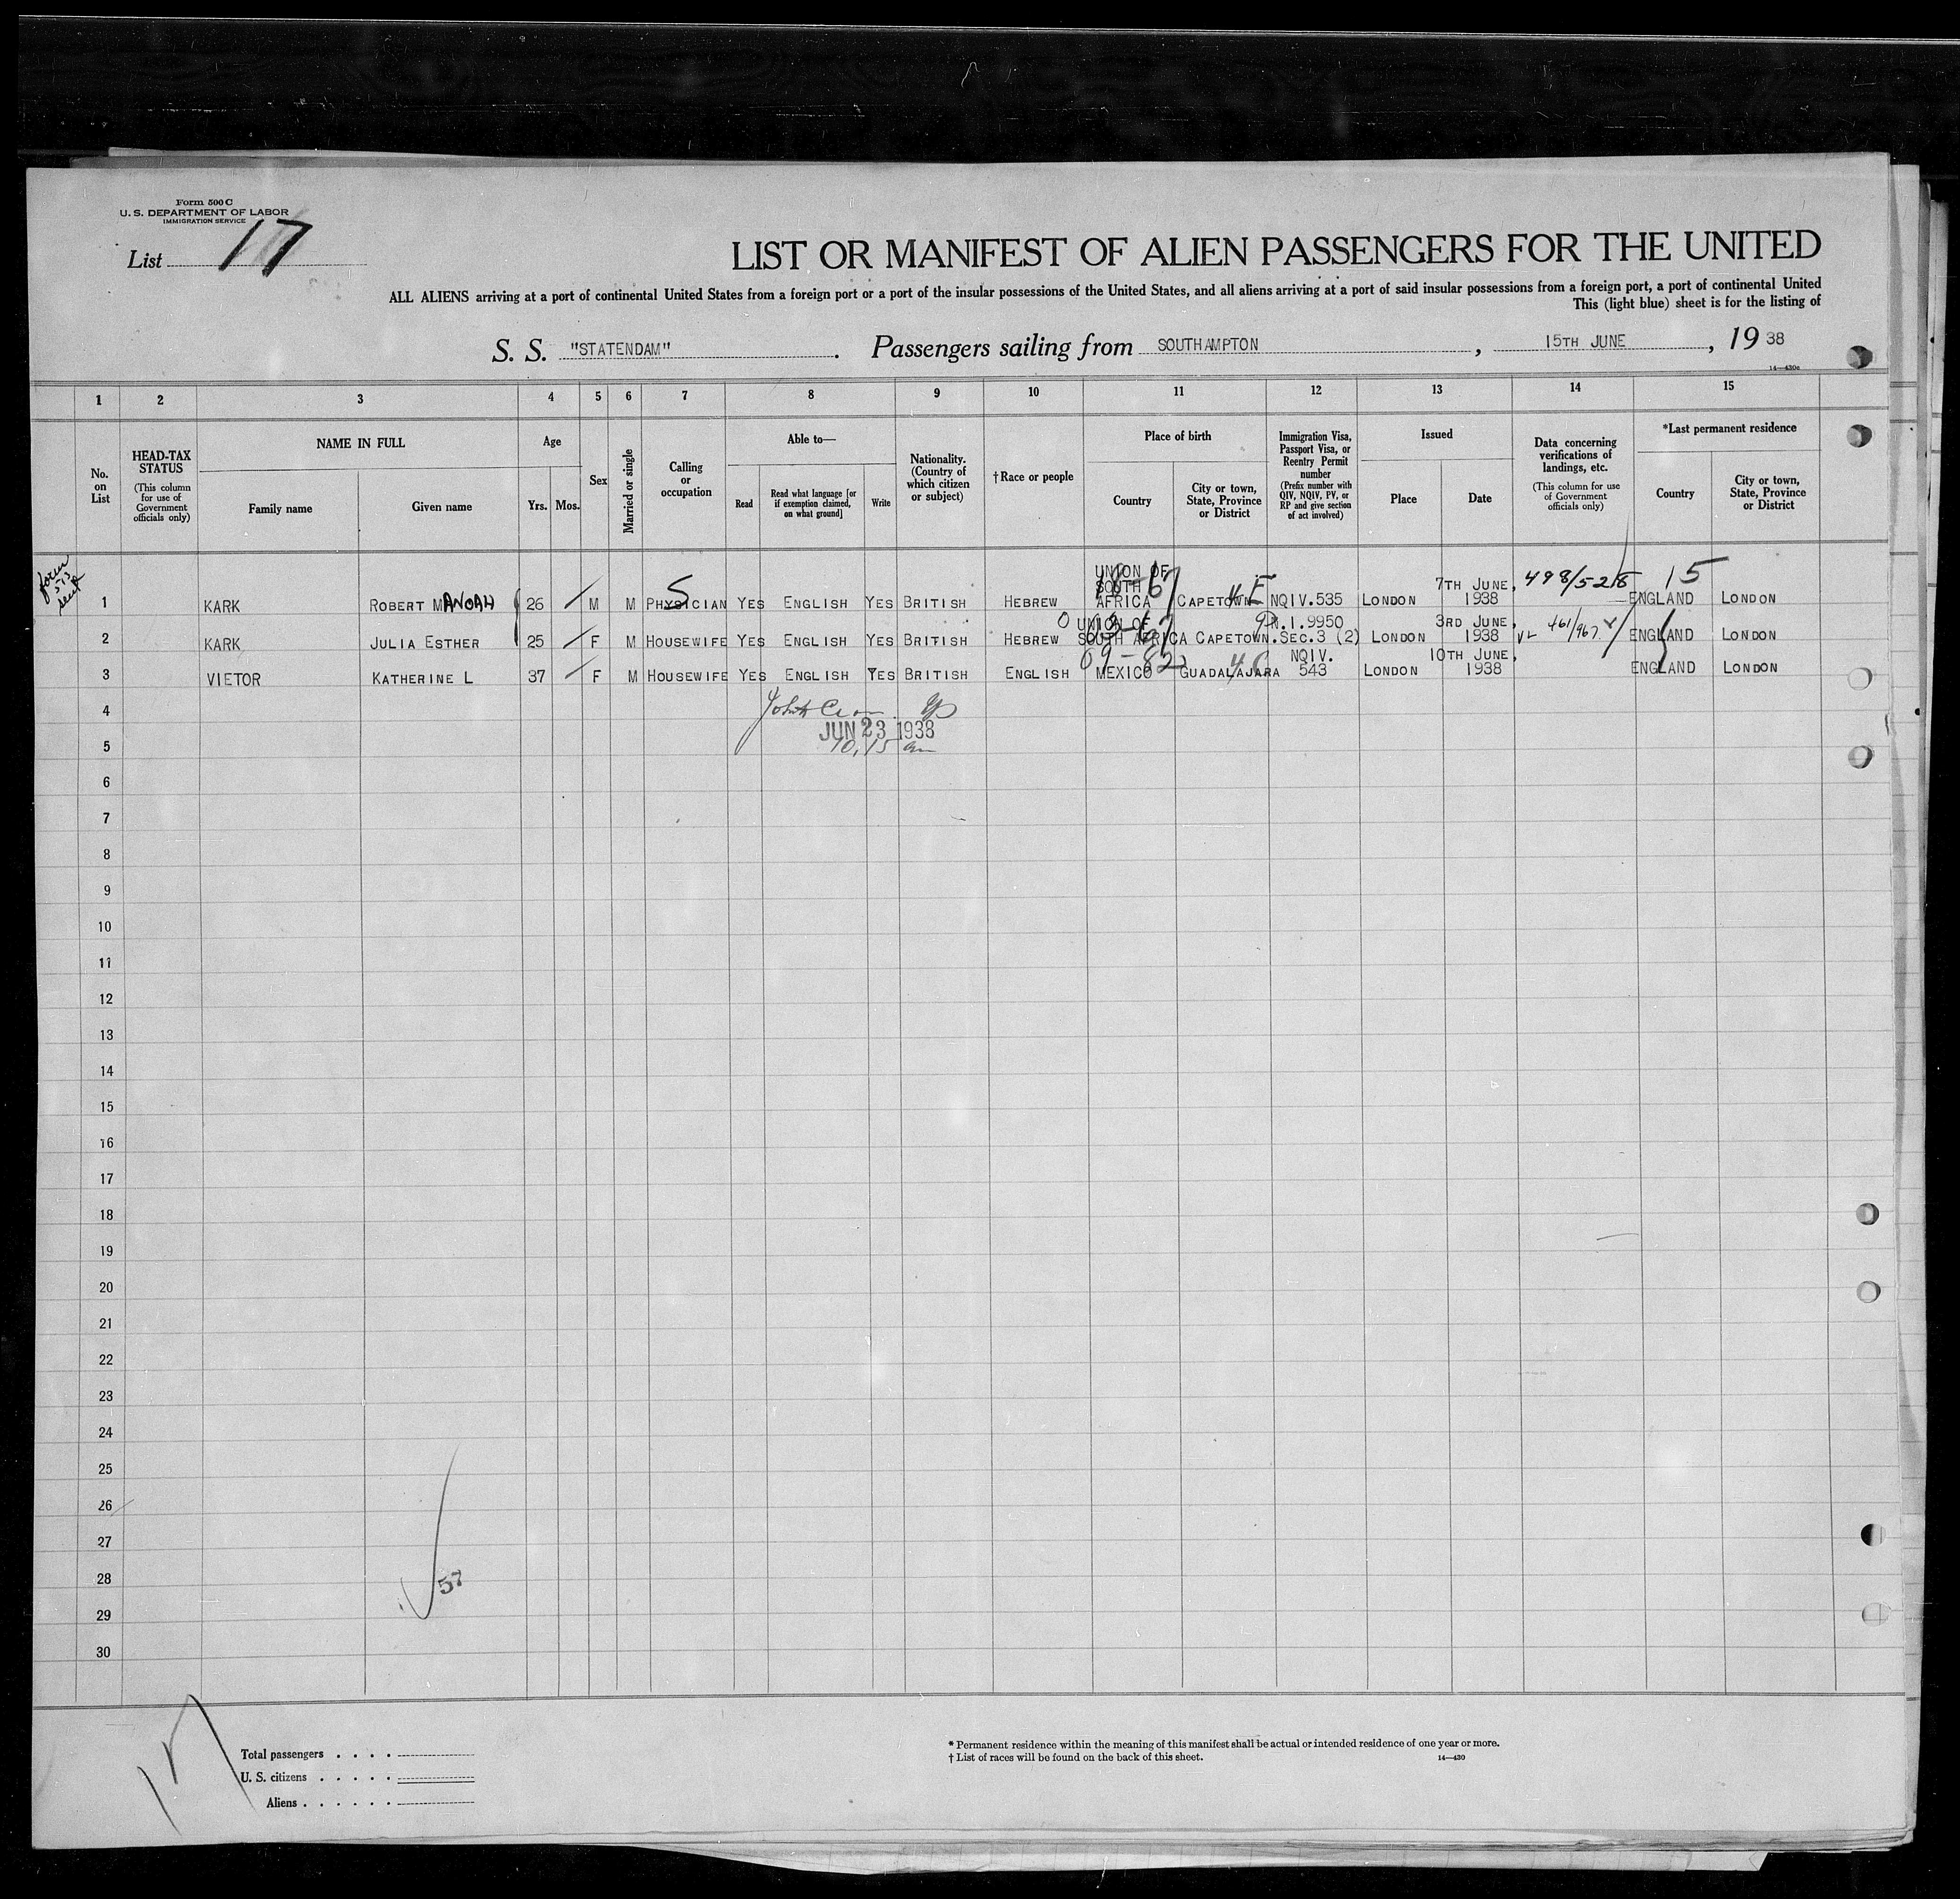 Form 500 C
U. S. DEPARTMENT OF LABOR
IMMIGRATION SERVICE
List 17
LIST OR MANIFEST OF ALIEN PASSENGERS FOR THE UNITED
ALL ALIENS arriving at a port of continental United States from a foreign port or a port of the insular possessions of the United States, and all aliens arriving at a port of said insular possessions from a foreign port, a port of continental United
This (light blue) sheet is for the listing of
S. S. "STATENDAM". Passengers sailing from SOUTHAMPTON, 15TH JUNE, 19 38
14—430c
1 2 3 4 5 6 7 8 9 10 11 12 13 14 15
No. on List
HEAD-TAX STATUS (This column for use of Government officials only)
NAME IN FULL
Family name
Given name
Age
Yrs. Mos.
Sex
Married or single
Calling or occupation
Able to—
Read
Read what language [or if exemption claimed, on what ground]
Write
Nationality. (Country of which citizen or subject)
†Race or people
Place of birth
Country
City or town, State, Province or District
Immigration Visa, Passport Visa, or Reentry Permit number (Prefix number with QIV, NQIV, PV, or RP and give section of act involved)
Issued
Place
Date
Data concerning verifications of landings, etc. (This column for use of Government officials only)
*Last permanent residence
Country
City or town, State, Province or District
form 513 sent
1 KARK ROBERT MANOAH 26 M M PHYSICIAN S YES ENGLISH YES BRITISH HEBREW UNION OF SOUTH AFRICA CAPETOWN NQIV.535 LONDON 7TH JUNE, 1938 498/528 15 ENGLAND LONDON
2 KARK JULIA ESTHER 25 F M HOUSEWIFE YES ENGLISH YES BRITISH HEBREW UNION OF SOUTH AFRICA CAPETOWN. N.I.9950 SEC.3 (2) LONDON 3RD JUNE, 1938 461/967 ENGLAND LONDON
3 VIETOR KATHERINE L 37 F M HOUSEWIFE YES ENGLISH YES BRITISH ENGLISH 09-82 MEXICO GUADALAJARA NQIV. 543 LONDON 10TH JUNE, 1938 ENGLAND LONDON
4
JUN 23 1938
5
10,15 am
6
7
8
9
10
11
12
13
14
15
16
17
18
19
20
21
22
23
24
25
26
27
28
57
29
30
Total passengers . . . .
U. S. citizens . . . . .
Aliens . . . . . .
* Permanent residence within the meaning of this manifest shall be actual or intended residence of one year or more.
† List of races will be found on the back of this sheet.
14—430